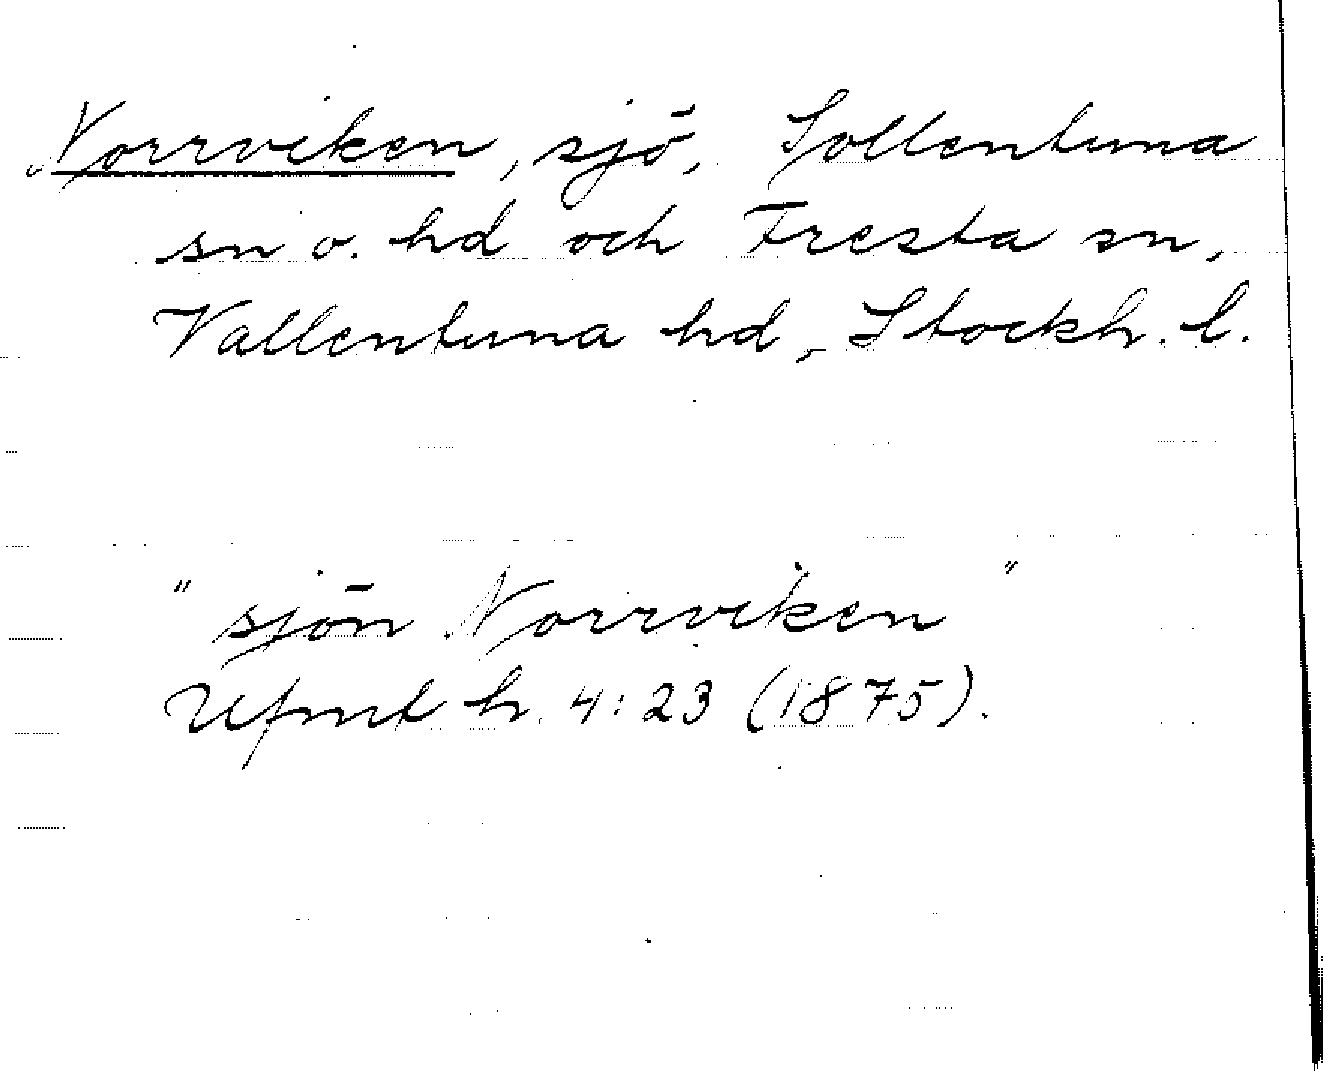 Norrviken, sjö, Sollentuna
sn o. hd och Fresta sn,
Vallentuna hd, Stockh. l.
"sjön Norrviken"
Ufmt h. 4:23 (1875).